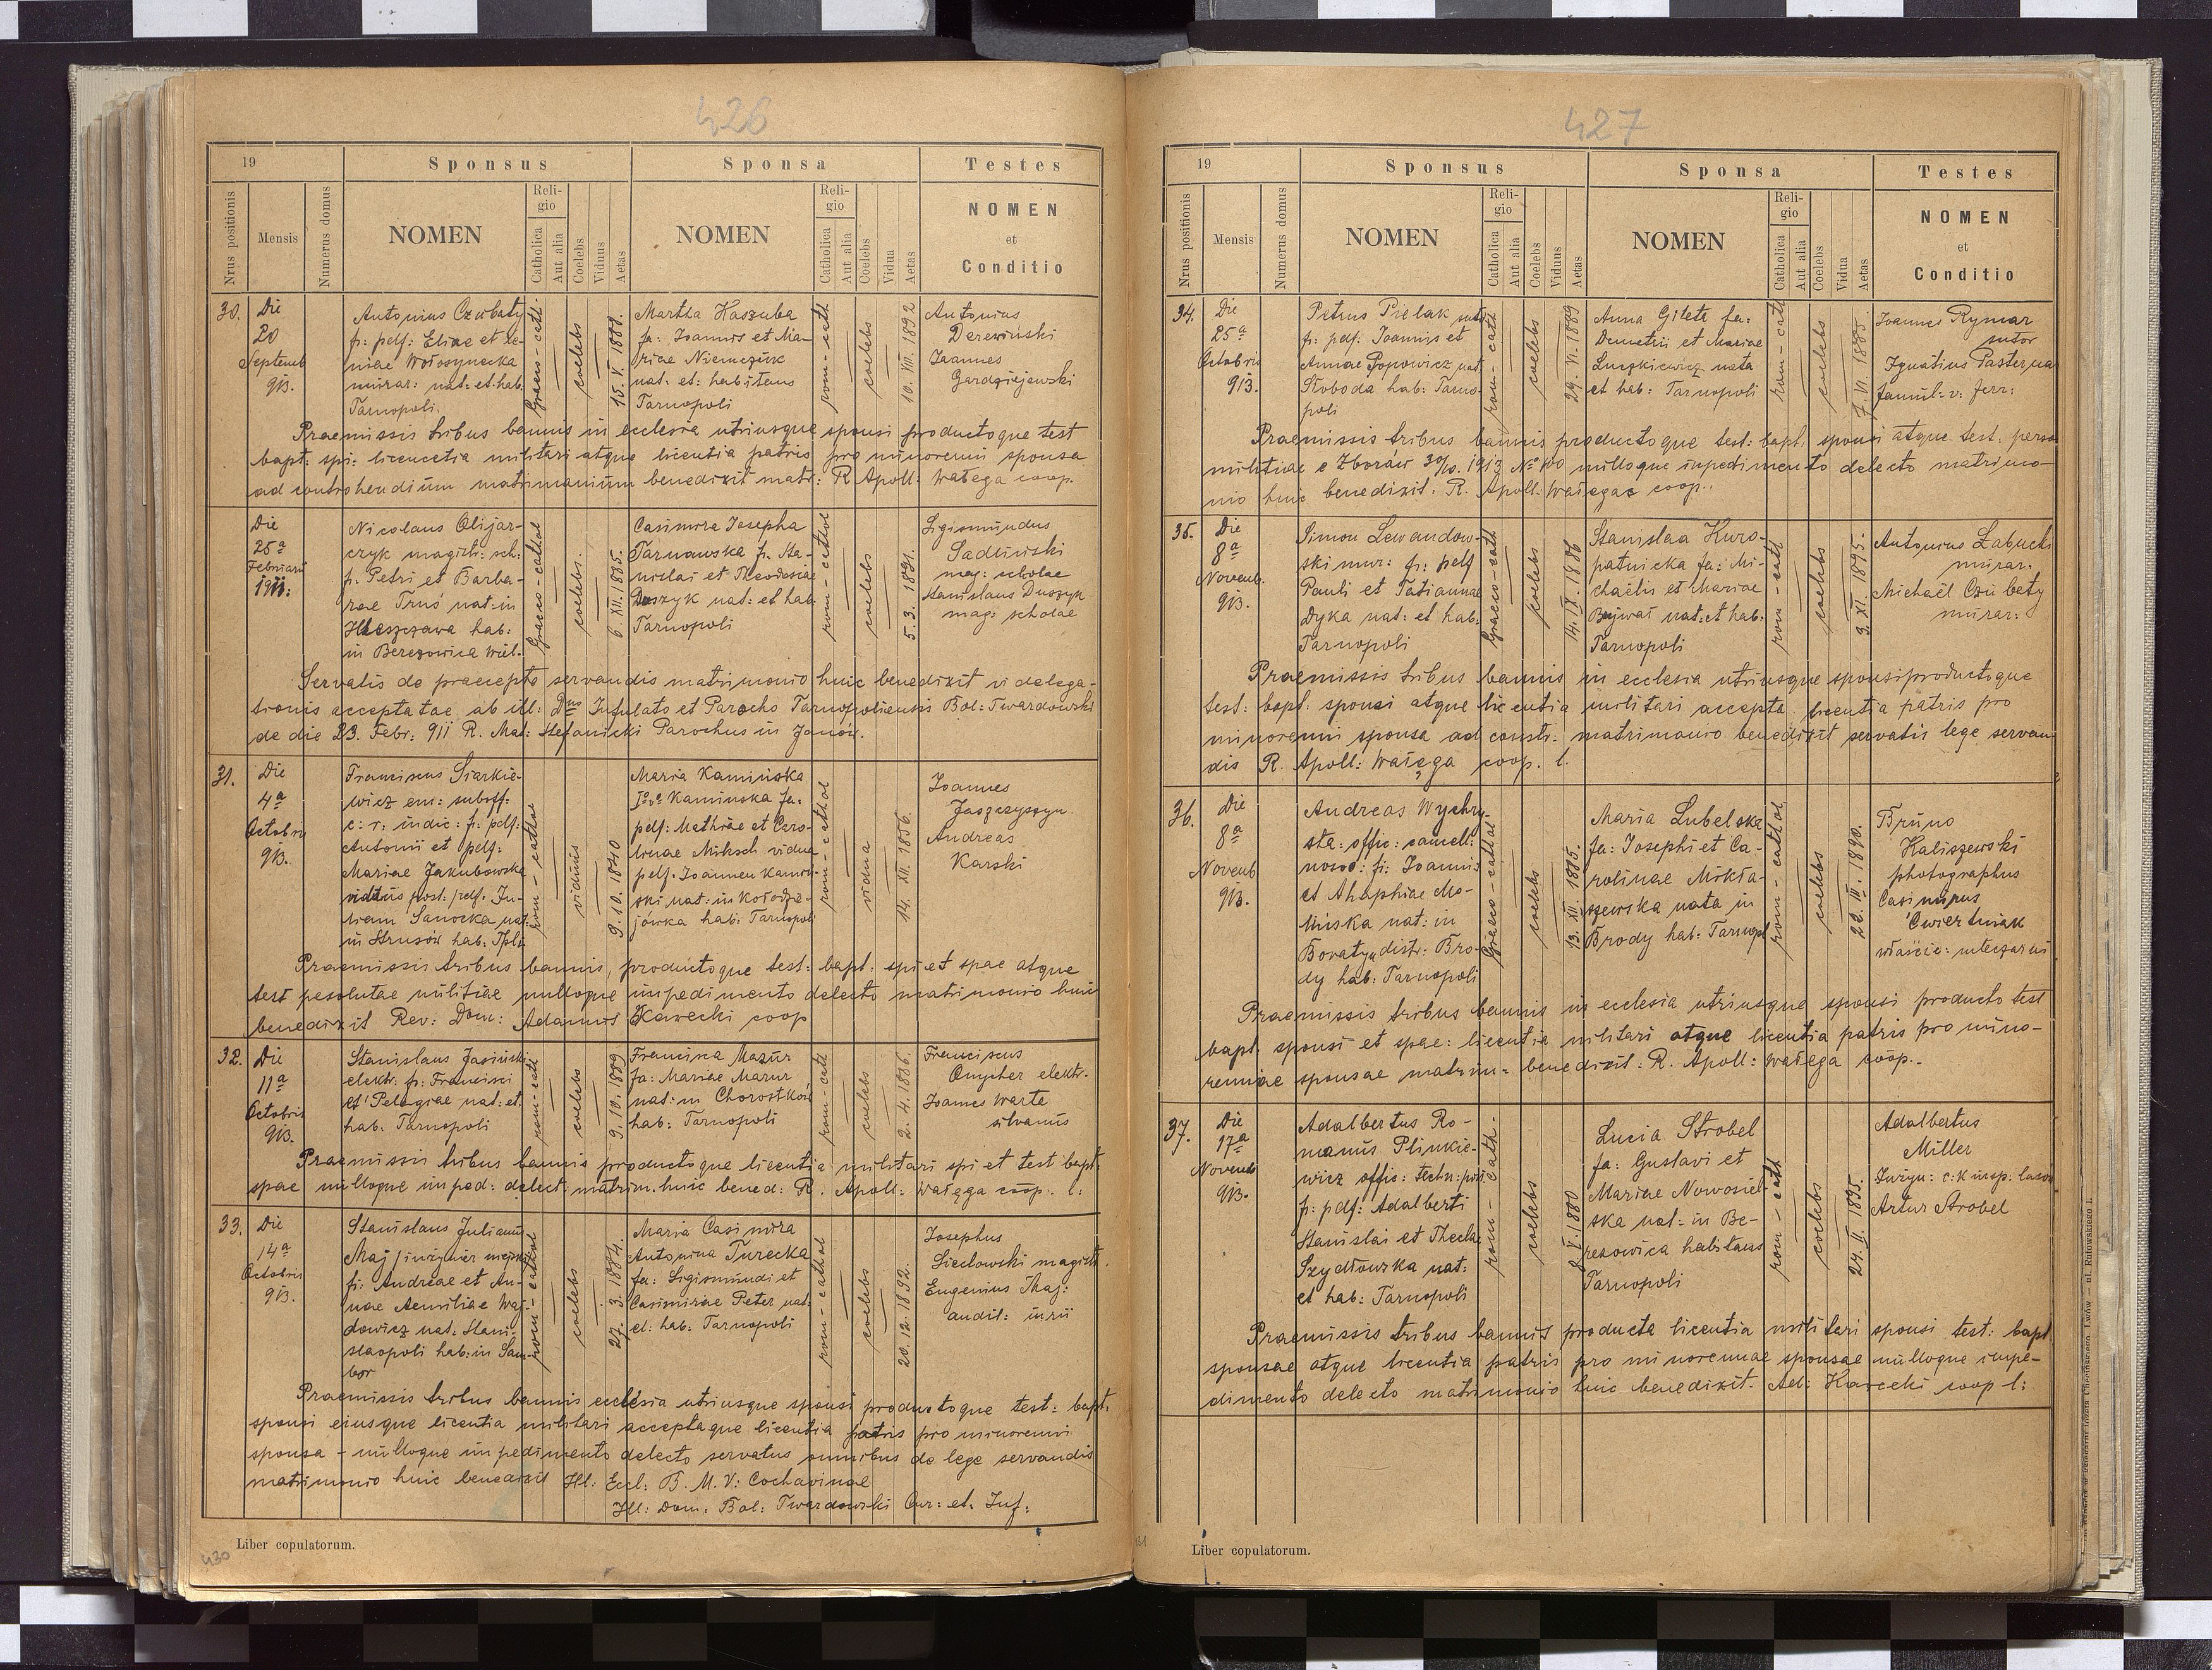 426
19
Sponsus
Sponsa
Testes
Nrus positionis
Mensis
Numerus domus
NOMEN
Reli-
gio
Catholica
Aut alia
Coelebs
Viduus
Aetas
NOMEN
Reli-
gio
Catholica
Aut alia
Coelebs
Vidua
Aetas
NOMEN
et
Conditio
30.
Die
20
Septemb
913.
Antonius Czubaty
fi: pdf: Eliae et Xe-
niae Wołoszynecka
murar: nat: et hab.
Tarnopoli.
Graeco-cath.
coelebs
15. V. 1888.
Martha Kaszuba
fa: Joannis et Ma-
riae Niemczuk
nat: et: habitans
Tarnopoli
rom-cath
coelebs
10. VII. 1892
Antonius
Derewiński
Joannes
Gardziejewski
Praemissis tribus bannis in ecclesia utriusque sponsi productoque test
bapt: spi: licencetia militari atque licentia patris pro minorenni sponsa
ad controhendium matrimonium benedixit matr: R Apoll: Wałęga coop.
Die
25ª
Februarii
1911.
Nicolaus Olijar-
czyk magistr: sch:
fi. Petri et Barba-
rae Truś nat: in
Hleszczawa hab:
in Berezowica Wiel.
Graeco-cathol
coelebs.
6. XII. 1885.
Casimira Josepha
Tarnawska fi. Sta-
nislai et Theodosiae
Duszyk nat: et hab
Tarnopoli
rom-cathol
coelebs
5. 3. 1891.
Sigismundus
Sadliński
mag: scholae
Stanislaus Duszyk
mag: scholae
Servatis de praecepto servandis matrimonio huic benedixit vi delega-
tionis acceptatae ab ill: Dno Infulato et Parocho Tarnopoliensis Bol: Twardowski
de die 23. Febr: 911 R. Mat: Stefanicki Parochus in Janów.
31.
Die
4ª
Octobris
913.
Franciscus Siarkie-
wicz em: suboff:
c: r: indic: fi: pdf:
Antonii et pdf:
Mariae Jakubowska
viduus post: pdf. Ju-
liam Sanocka nat:
in Strusów hab: Tpli
rom-cathol
viduus
9. 10. 1840
Maria Kamińska
Io vo Kamińska fa:
pdf: Mathiae et Caro-
linae Miksch vidua
pdf. Joannem Kamiń-
ski nat: in Kołodzie-
jówka hab: Tarnopoli
rom-cathol
vidua
14. XII. 1856.
Joannes
Jaszczyszyn
Andreas
Karski
Praemissis tribus bannis, productoque test: bapt: spi et spae atque
test pesolutae militiae nulloque impedimento delecto matrimonio huic
benedixit Rev: Dom: Adamus Kawecki coop
32.
Die
11ª
Octobris
913.
Stanislaus Jasiński
elektr: fi: Francisci
et Pelagiae nat: et
hab: Tarnopoli
rom-cath
coelebs
9. 10. 1889
Francisca Mazur
fa: Mariae Mazur
nat: in Chorostków
hab: Tarnopoli
rom-cath
coelebs
2. 4. 1886.
Franciscus
Onycher elektr.
Joannes Warta
silvanus
Praemissis tribus bannis productoque licentia militari spi et test bapt:
spae nulloque imped: delect: matrim. huic bened: R. Apoll: Wałęga coop. l:
33.
Die
14ª
Octobris
913.
Stanislaus Julianus
Maj/inżynier
fi: Andreae et An-
nae Aemiliae Waj-
dowicz nat: Stani-
slaopoli hab: in Sam-
bor
rom-cathol
coelebs
27. 3. 1884.
Maria Casimira
Antonina Turecka
fa: Sigismundi et
Casimirae Peter nat:
et. hab: Tarnopoli
rom-cathol
coelebs
20. 12. 1892.
Josephus
Siedowski magistr.
Eugenius Maj:
audit: iurii
Praemissis tribus bannis ecclesia utriusque sponsi productoque test: bapt.
sponsi eiusque licentia militari acceptaque licentia patris pro minorenni
sponsa - nulloque impedimento delecto servatus omnibus de lege servandis
matrimonio huic benedixit Ill: Eccl: B. M. V: Cochavinae
Ill: Dom: Bol: Twardowski Cur: et. Inf:
Liber copulatorum.
430
427
19
Sponsus
Sponsa
Testes
Nrus positionis
Mensis
Numerus domus
NOMEN
Reli-
gio
Catholica
Aut alia
Coelebs
Viduus
Aetas
NOMEN
Reli-
gio
Catholica
Aut alia
Coelebs
Vidua
Aetas
NOMEN
et
Conditio
34.
Die
25ª
Octobris
913.
Petrus Pielak sutor
fi: pdf: Joannis et
Annae Popowicz nat
Słoboda hab: Tarno-
poli
rom-cath
coelebs
29. VI. 1889
Anna Gileta fa:
Demetrii et Mariae
Luczkiewicz nata
et hab: Tarnopoli
rom-cath
coelebs
7. VII. 1885.
Joannes Rymar
sutor
Ignatius Pasternak
famul: v: ferr:
Praemissis tribus bannis productoque test: bapt: sponsi atque test. perso
militiae e Zborów 30/10. 1913 Nº 100 nulloque inpedimento delecto matrimo-
nio huic benedixit: R. Apoll: Wałęga coop..
35.
Die
8ª
Novemb.
913.
Simon Lewandow-
ski mur: fi: pdf
Pauli et Tatiannae
Dyka nat: et hab:
Tarnopoli
Graeco-cath
coelebs
14. IX. 1886
Stanislaa Kuro-
patnicka fa: Mi-
chaelis et Mariae
Bojwał nat: et hab:
Tarnopoli
rom-cath
coelebs
9. XI. 1895.
Antonius Łabucki
murar.
Michaël Czubaty
murar:
Praemissis tribus bannis in ecclesia utriusque sponsi productoque
test: bapt: sponsi atque licentia militari accepta licentia patris pro
minorenni sponsa ad constr: matrimonio benedixit servatis lege servan
dis R. Apoll: Wałęga coop. l.
36.
Die
8ª
Novemb
913.
Andreas Wychry-
sta: offic: cancell:
nowod: fi: Joannis
et Ahaphiae Mo-
lińska nat: in
Boratyn distr: Bro-
dy hab: Tarnopoli
Graeco-cathol
coelebs
13. XII. 1885.
Maria Lubelska
fa: Josephi et Ca-
rolinae Mikła-
szewska nata in
Brody hab: Tarnop
rom-cathol
coelebs
22. II. 1890.
Bruno
Kaliszewski
photographus
Casimirus
Ćwiertniak
właścic: mleczarni
Praemissis tribus bannis in ecclesia utriusque sponsi producto test
bapt sponsi et spae: licentia militari atque licentia patris pro mino-
renniae sponsae matrim: benedixit: R. Apoll: Wałęga coop..
37.
Die
17ª
Novemb
913.
Adalbertus Ro-
manus Plinkie-
wicz offic: techn:
fi: pdf: Adalberti
Stanislai et Theclae
Szydłowska nat:
et hab: Tarnopoli
rom-cath.
coelebs
8. V. 1880
Lucia Strobel
fa: Gustavi et
Mariae Nowosiel-
ska nat: in Be-
rezowica habitans
Tarnopoli
rom-cath
coelebs
24. II. 1895.
Adalbertus
Miller
Inżyn: c: k insp: lasów
Artur Strobel
Praemissis tribus bannis producta licentia militari sponsi test: bapt
sponsae atque licentia patris pro minorennae sponsae nulloque impe-
dimento delecto matrimonio huic benedixit. Ad: Kawecki coop l:
Liber copulatorum.